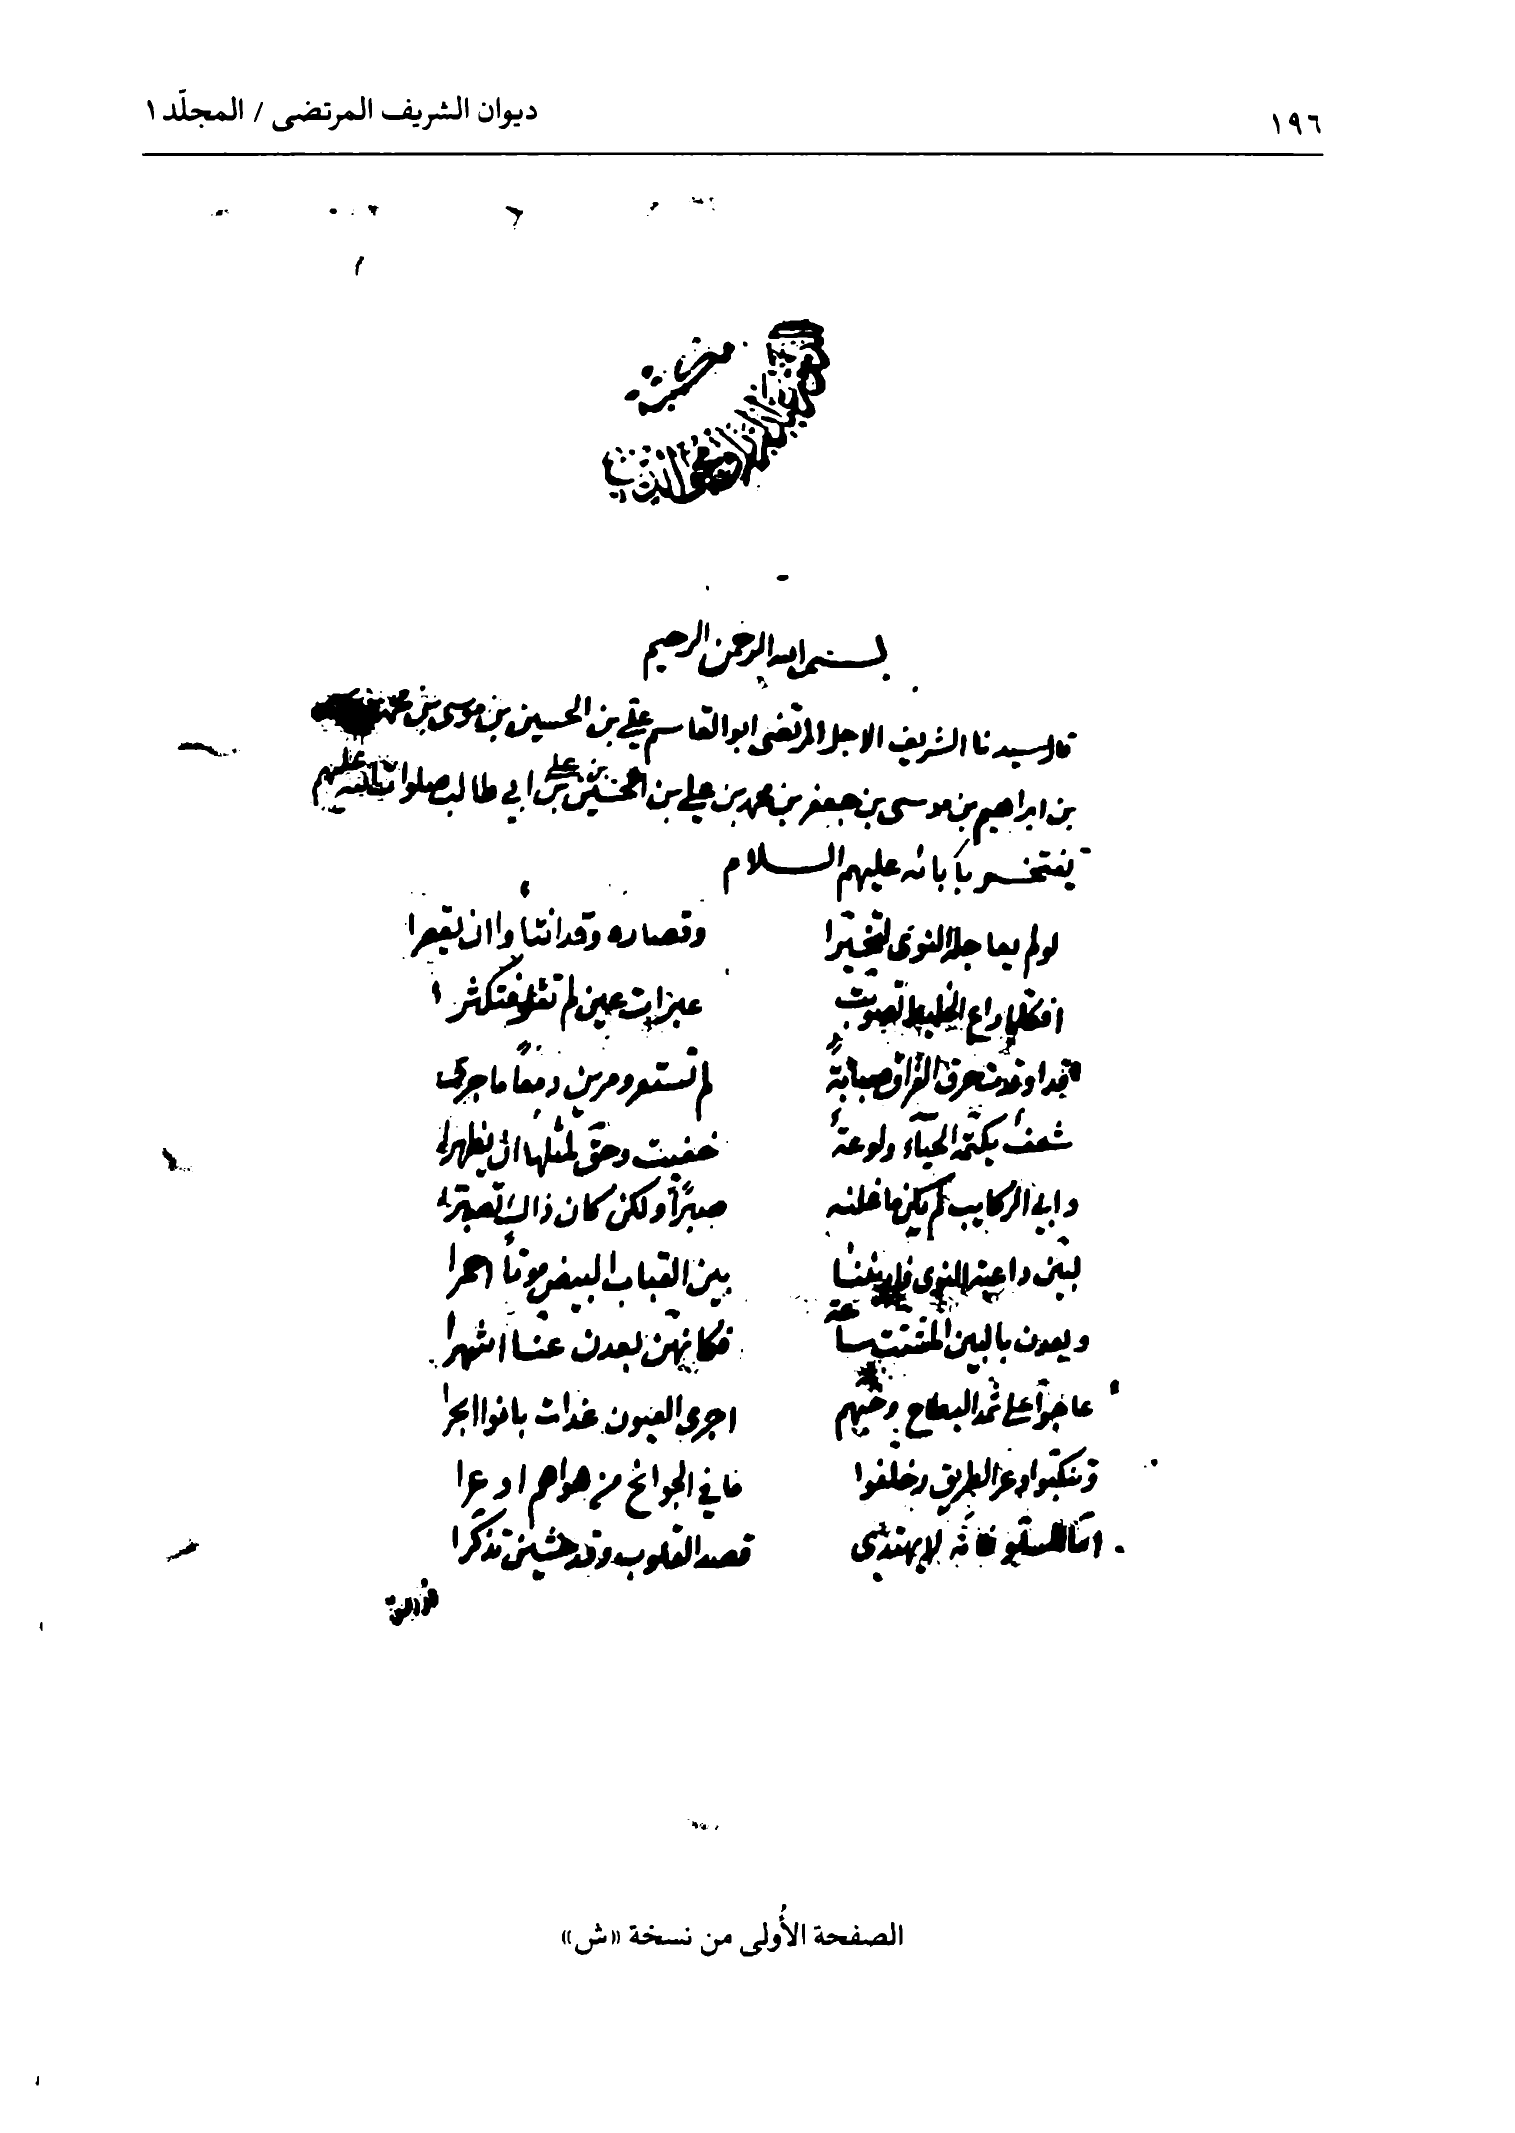 ١٩٦ ديوان الشريف المرتضى / المجلّد ١
بسم الله الرحمن الرحيم
قال سيدنا الشريف الاجل المرتضى ابو القاسم علي بن الحسين بن موسى بن محمد
بن ابراهيم بن موسى بن جعفر بن محمد بن علي بن الحسين بن علي بن ابي طالب صلوات الله عليهم
يفتخر بآبائه عليهم السلام
لو لم يعاجله النوى لتحيّرا وقصاره وقد انتأوا ان يقصرا
افكلما راع الخليط تصوبت عبرات عين لم تقل فتكثرا
قد اوقدت حرق الفراق صبابةً لم تستعر ومرين دمعاً ما جرى
شغف يكتمه الحيآء ولوعة خفيت وحقّ لمثلها ان يظهرا
وابي الركايب لم يكن ما خلنه صبراً ولكن كان ذاك تصبّرا
لبّين داعية النوى فاريننا بين القباب البيض موتاً احمرا
وبعدن بالبين المشتت ساعة فكانهن بعدن عنا اشهرا
عاجوا على ثمد البطاح وحبهم اجرى العيون غداة بانوا ابحرا
وتنكبوا وعر الطريق وخلفوا ما في الجوانح من هواهم اوعرا
امّا السلو فانه لا يهتدي قصد القلوب وقد حشين تذكّرا
الصفحة الأُولى من نسخة «ش»